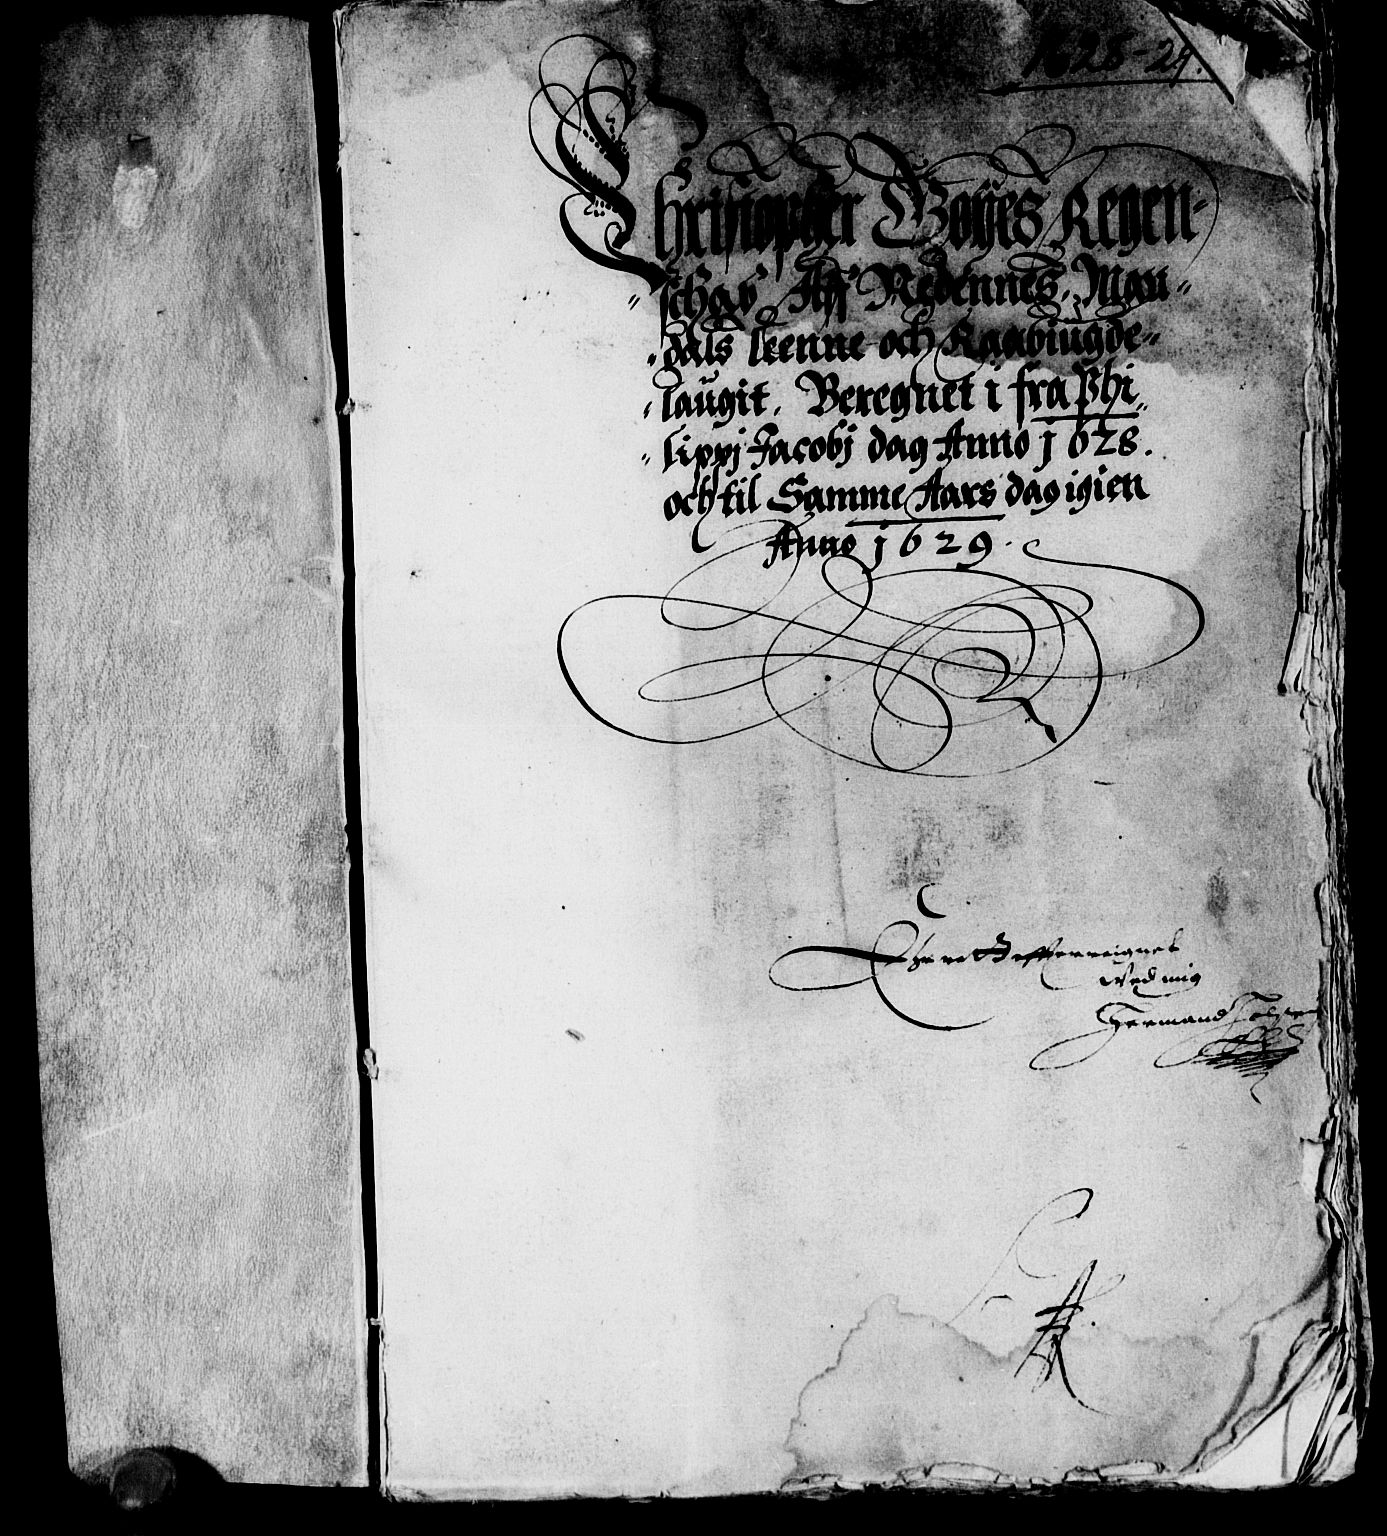 1628-29.
Christopher Gøÿes Regen-
schab, Aff Nedennes, Man-
dals leenne och Raabiugde-
laugit. Beregnet i fra Phi
lippj Jacobj dag Anno 1628.
och til Samme Aars dag igien
Anno 1629.
ved mig
Hermand